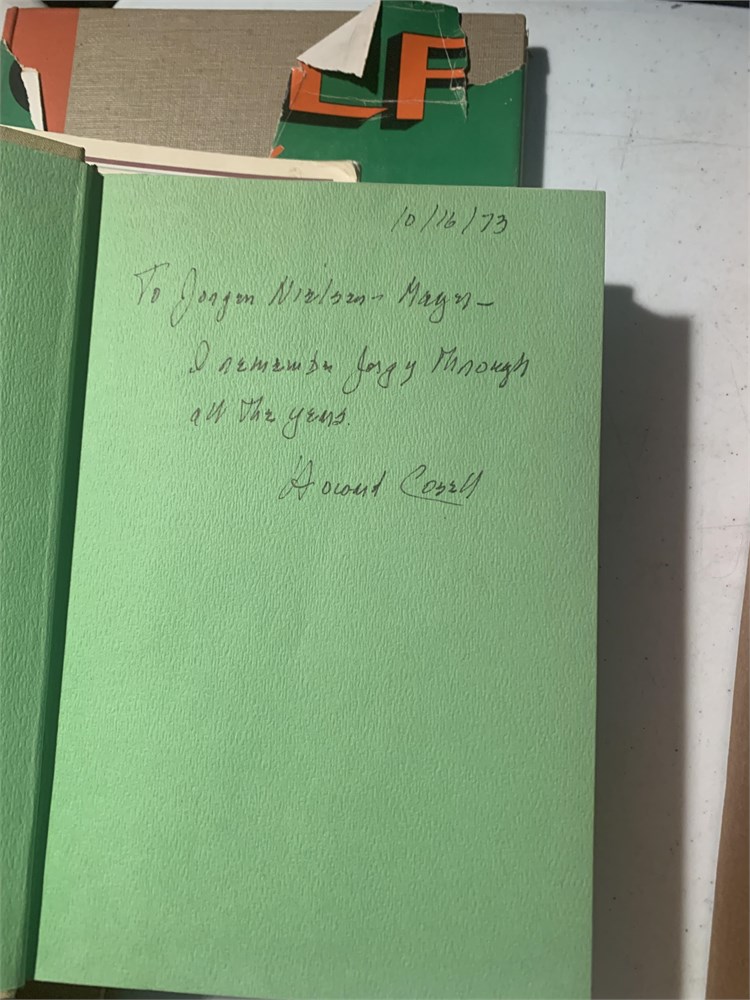 LF
10/16/73
To Jorgen Nielsen-Mayer-
I remember Jorgy through
all the years.
Howard Cosell